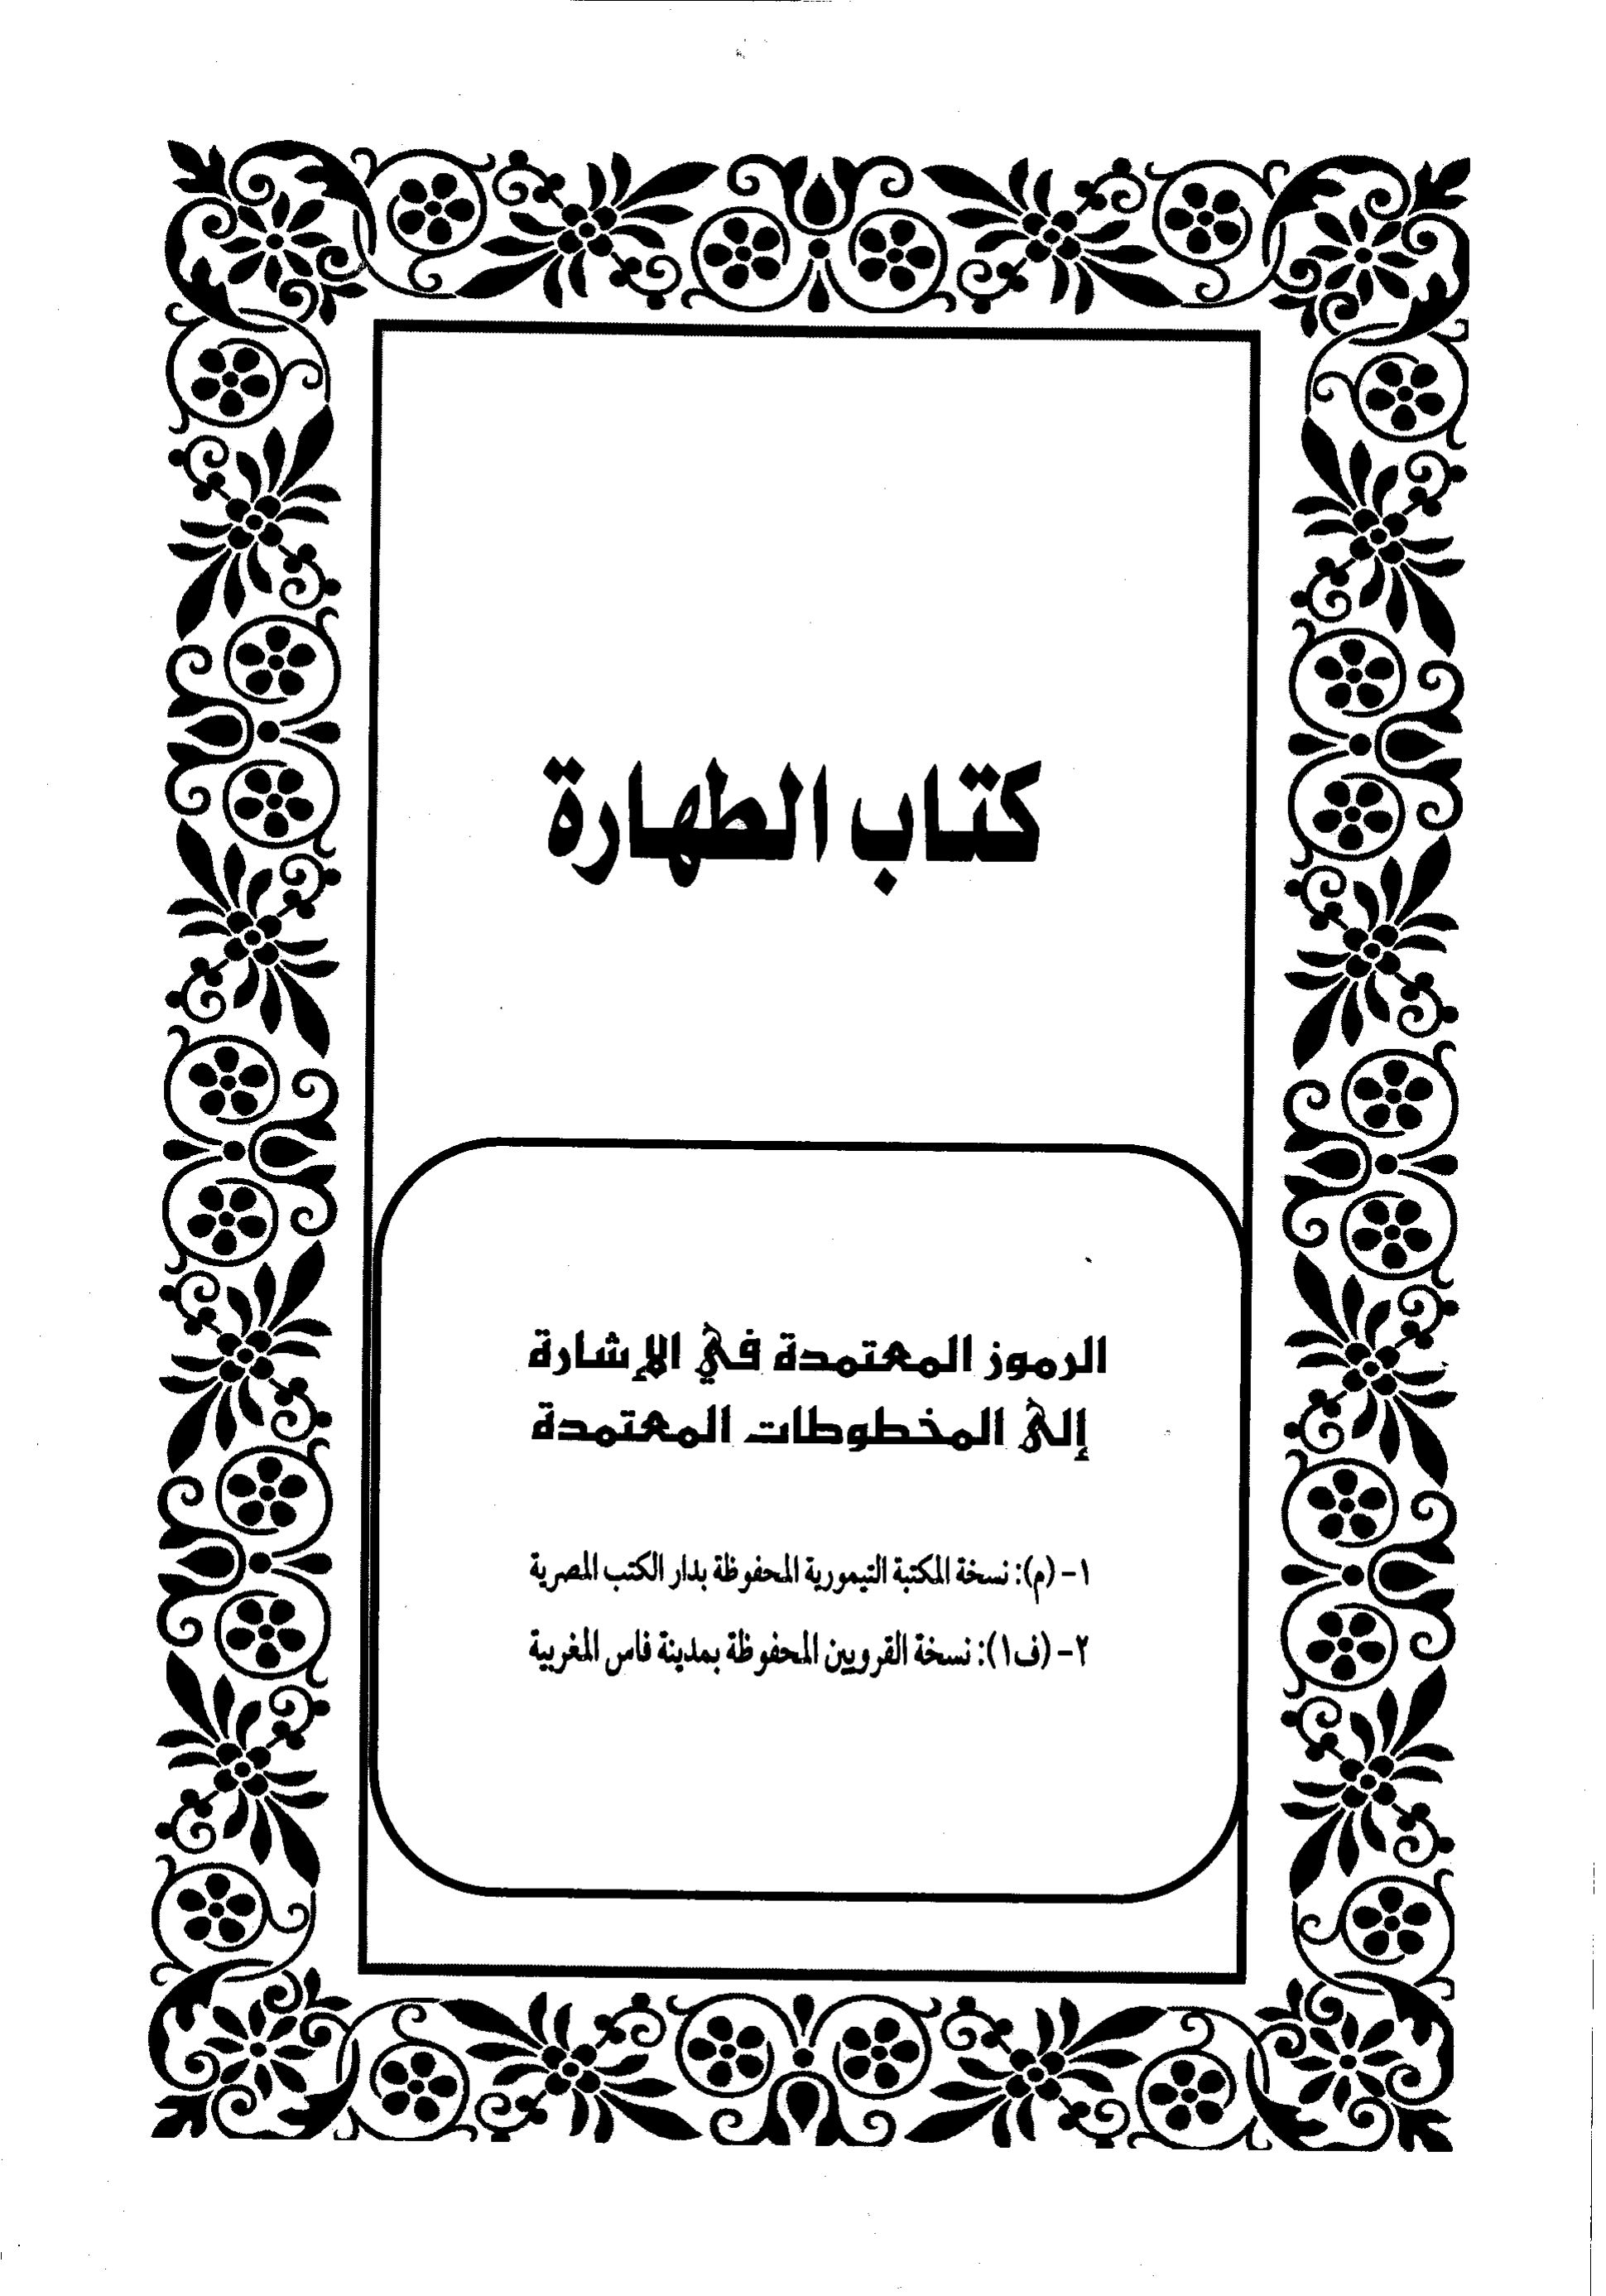 كتاب الطهارة
الرموز المعتمدة في الإشارة
إلى المخطوطات المعتمدة
١- (م): نسخة المكتبة التيمورية المحفوظة بدار الكتب المصرية
٢- (ف١): نسخة القرويين المحفوظة بمدينة فاس المغربية